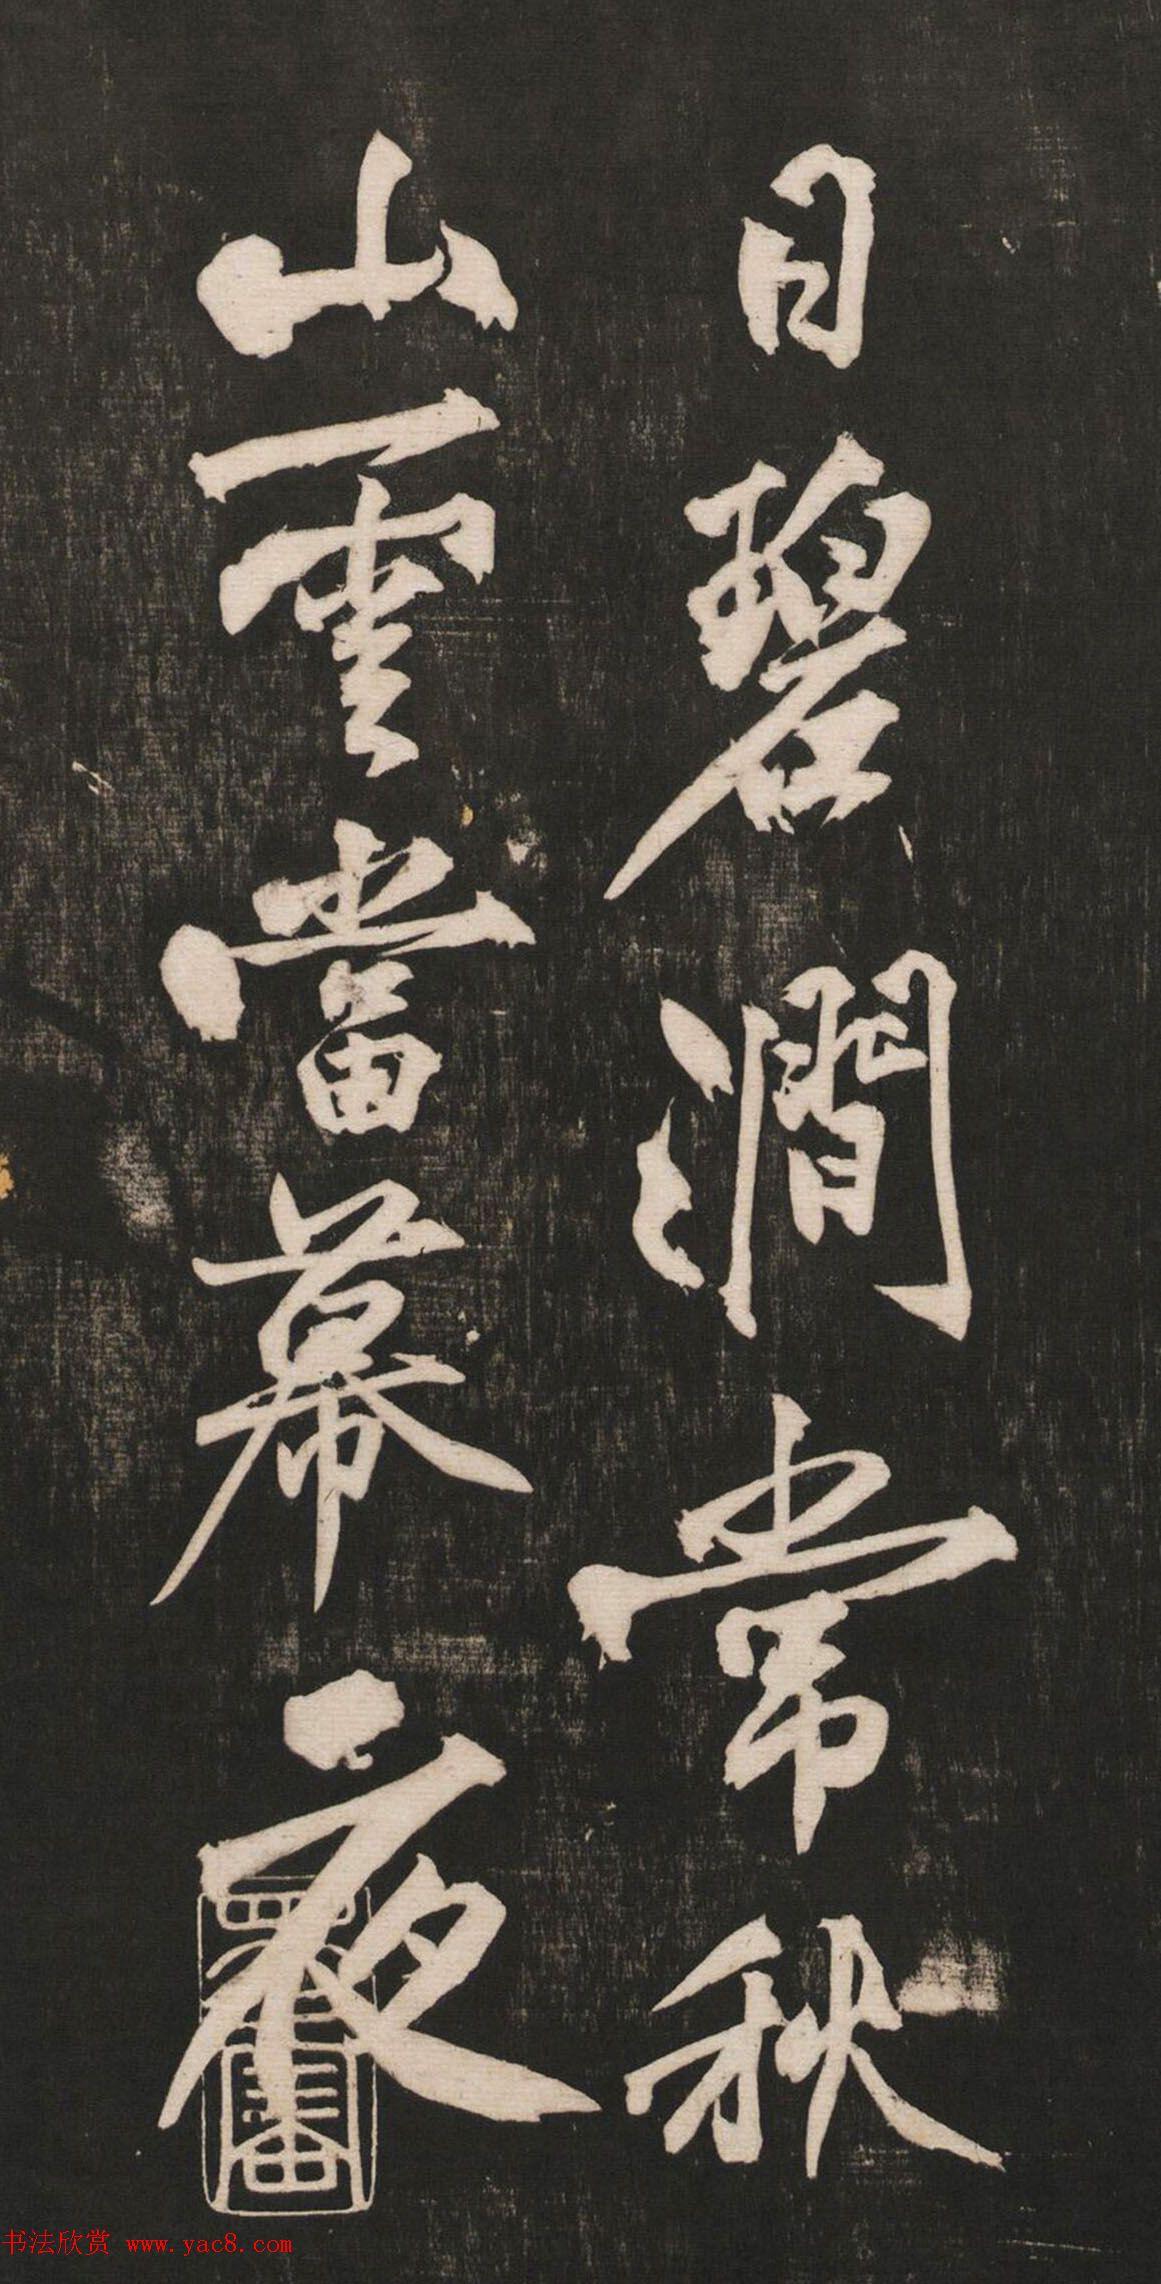 日碧澗常秋
山雲當幕夜
书法欣赏 www.yac8.com